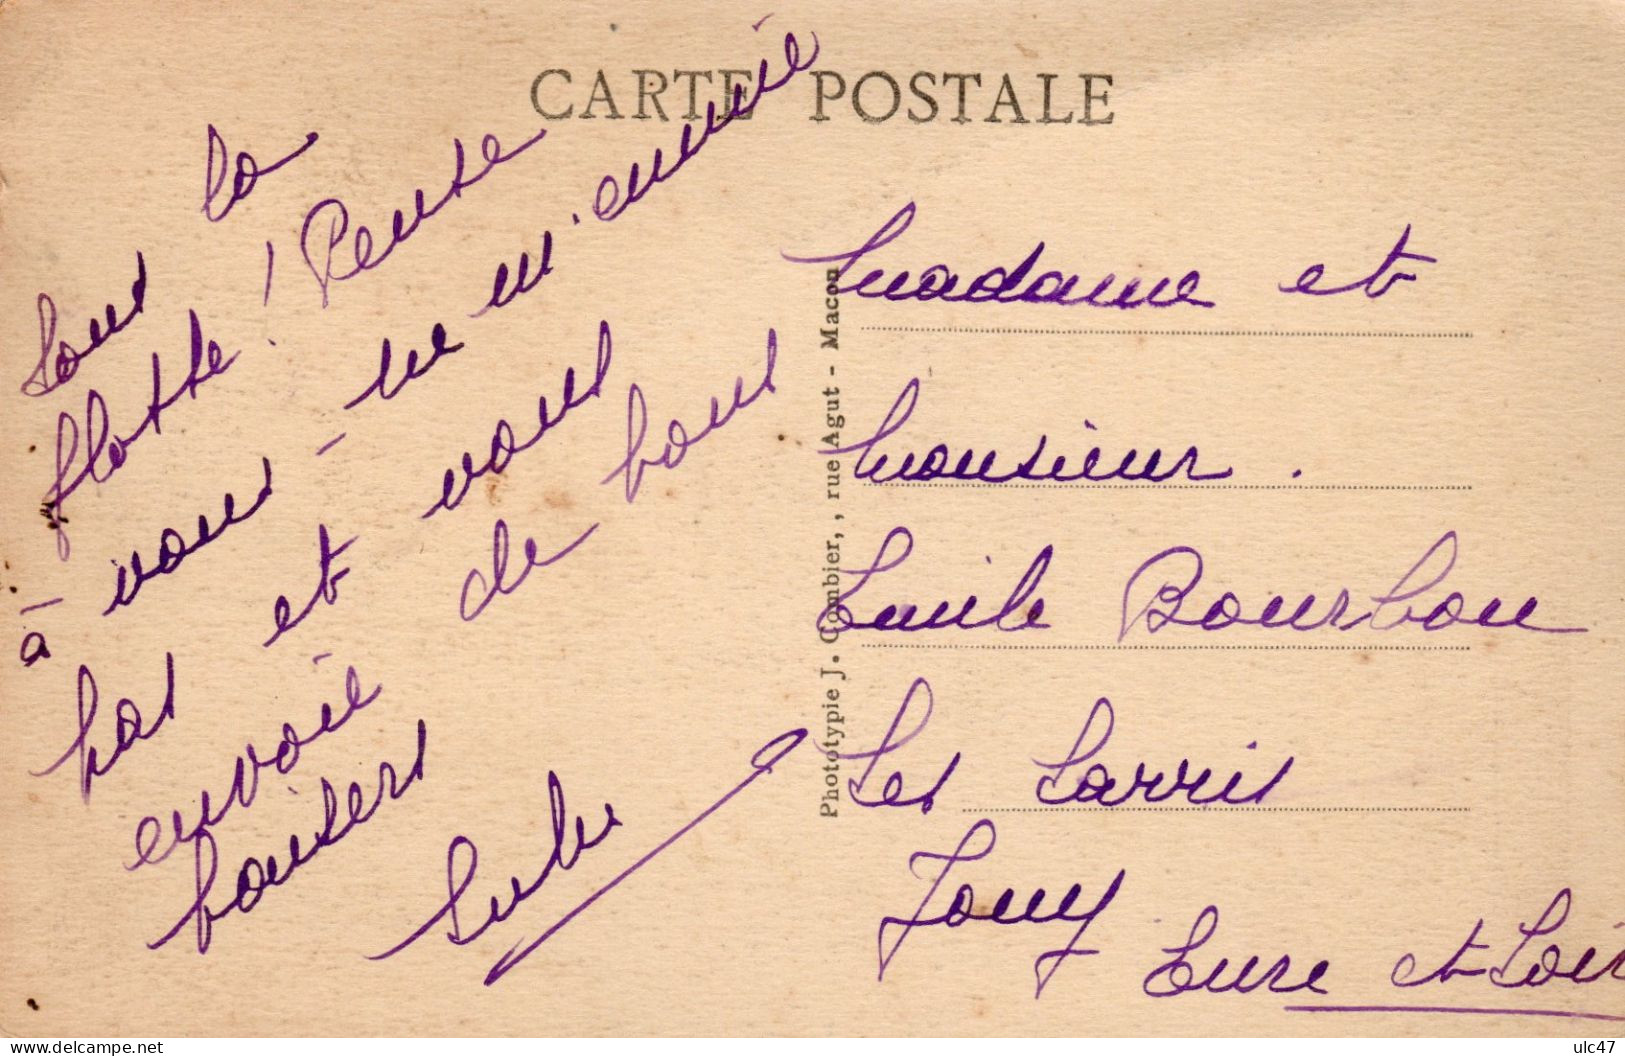 CARTE POSTALE
Sous la
flotte ! Pense
à vous - ne m'ennuie
pas et vous
envoie de bons
baisers
Phototypie J. Combier, , rue Agut - Macon
Madame et
Monsieur .
Emile Bourbon
Les Larris
Jouy
Eure et Loir
delcampe.net
ulc47